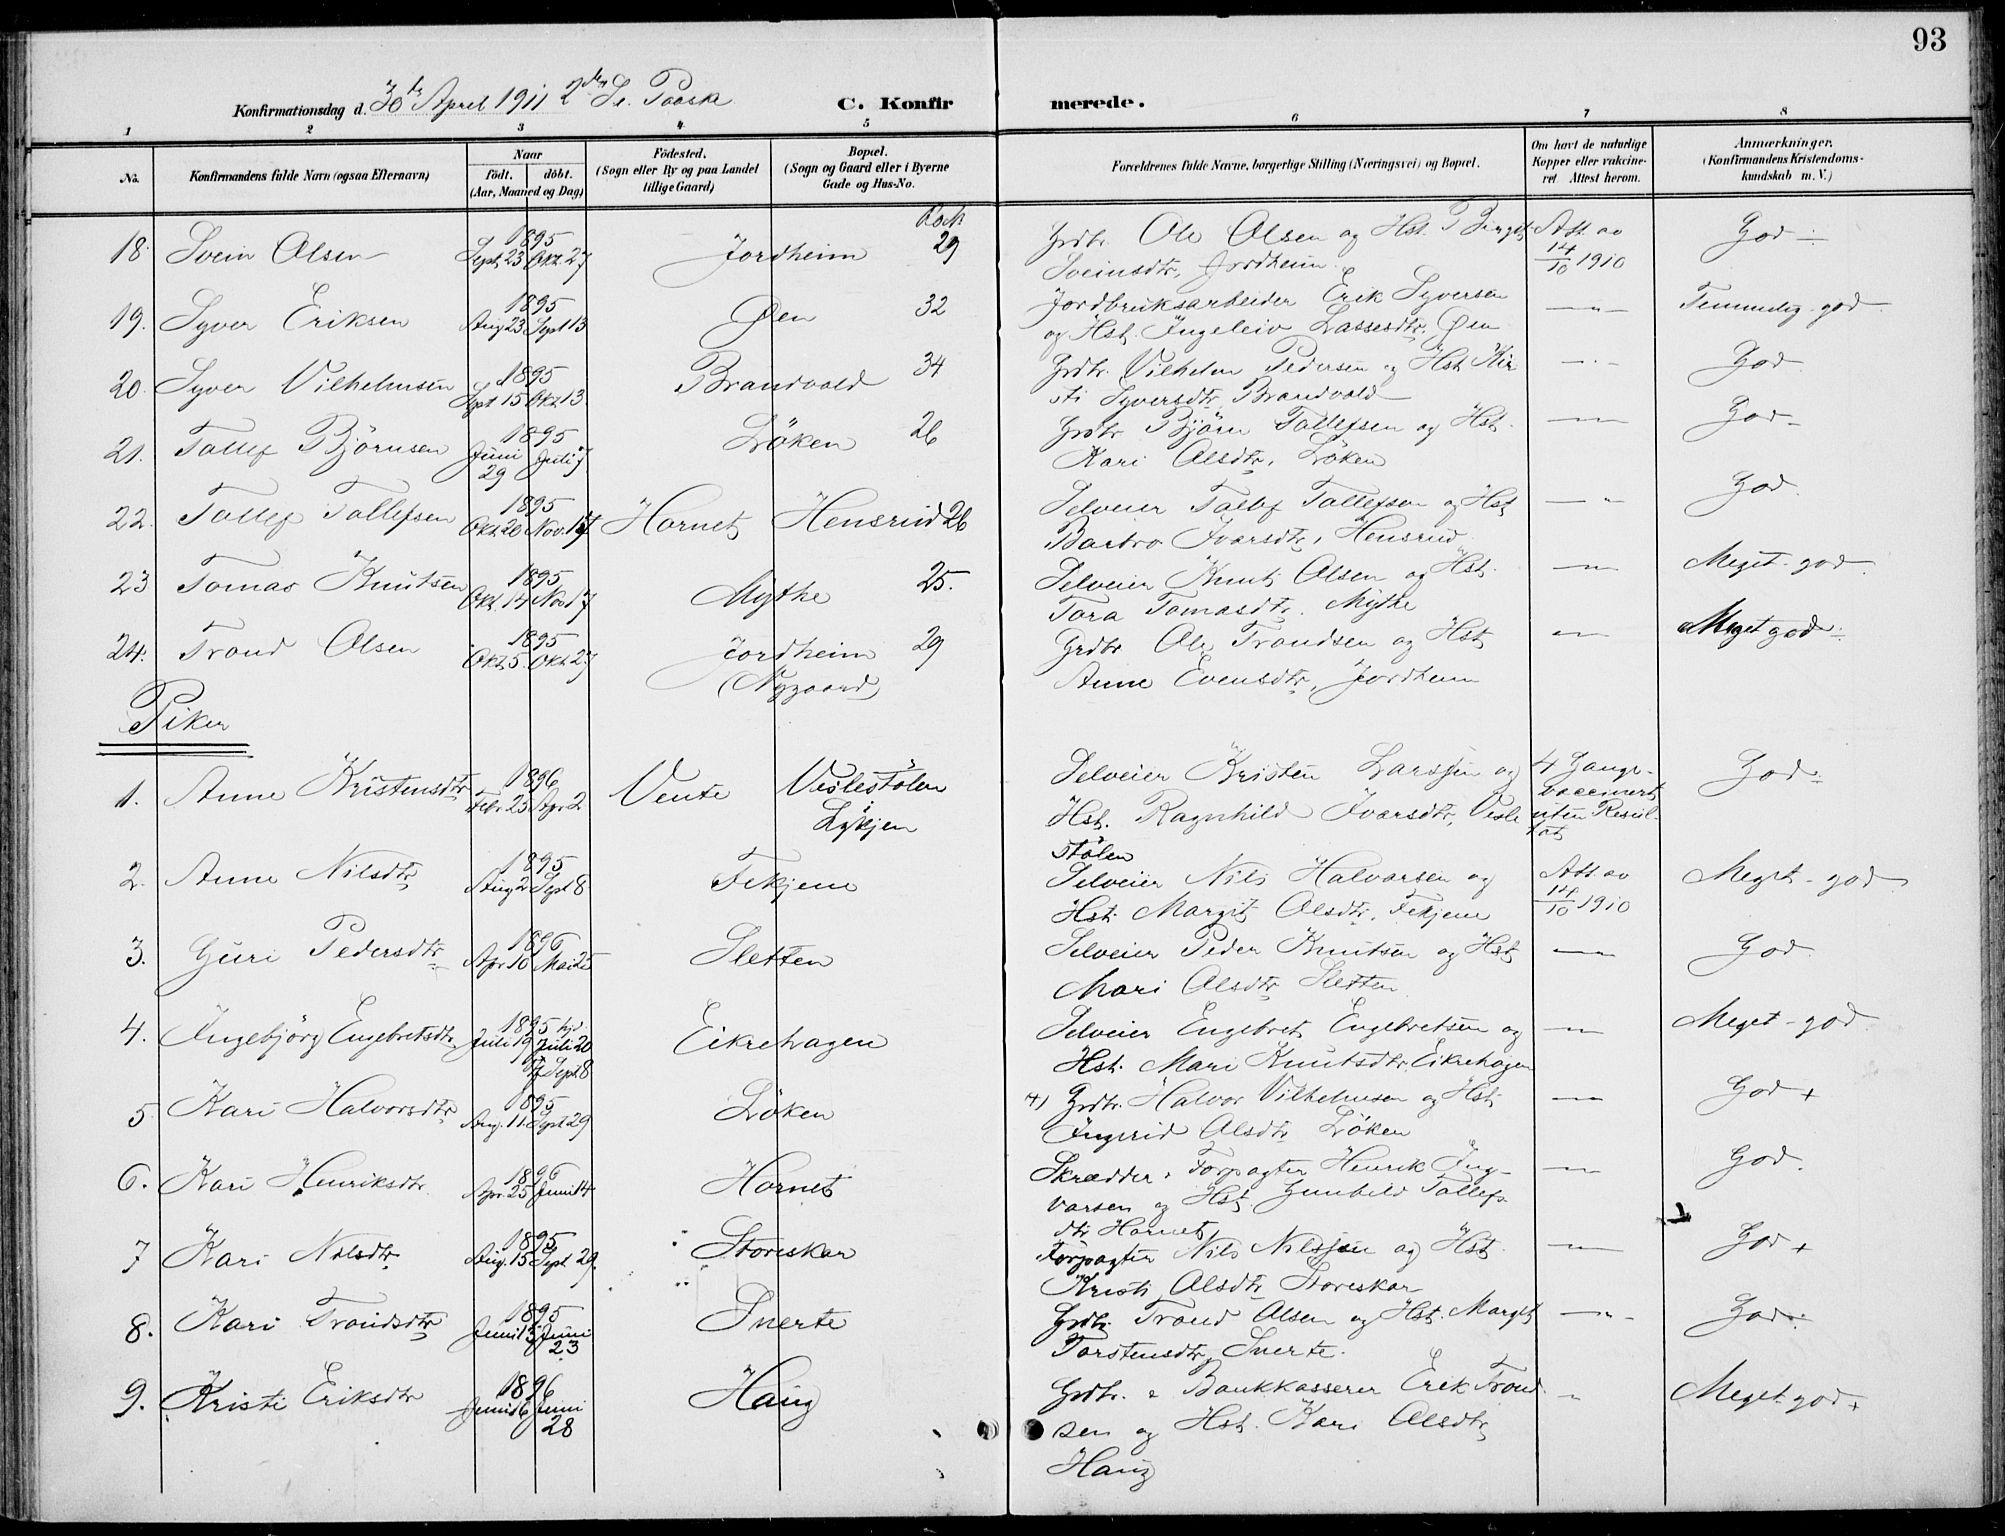 93
Konfirmationsdag d. 30te April 1911 2den S. e. Paaske C. Konfirmerede.
1 2 3 4 5 6 7 8
No. Konfirmandens fulde Navn (ogsaa Efternavn) Naar födt. döbt. (Aar, Maaned og Dag) Födested. (Sogn eller By og paa Landet tillige Gaard) Bopæl. (Sogn og Gaard eller i Byerne Gade og Hus-No. Forældrenes fulde Navne, borgerlige Stilling (Næringsvei) og Bopæl. Om havt de naturlige Kopper eller vaccineret Attest herom. Anmærkninger. (Konfirmandens Kristendomskundskab m. V.)
18. Svein Olsen 1895 Sept. 23 Okt. 27 Jordheim 29 Grdbr. Ole Olsen og Hst. Birgit Att. av God
Sveinsdtr. Jordheim. 14/10 1910
19. Syver Eriksen 1895 Aug 23 Sept 13 Øen 32 Jordbruksarbeider Erik Syversen — " — Temmelig god
og Hst. Ingeleiv Lassesdtr. Øen
20. Syver Vilhelmsen 1895 Sept 15 Okt. 13 Brandvold 34 Grdbr. Vilhelm Pedersen og Hst Kir — " — God
sti Syversdtr Brandvold
21. Tollef Björnsen 1895 Juni 29 Juli 7 Löken 26 Grdbr Björn Tollefsen og Hst. — " — God
Kari Olsdtr. Löken
22. Tollef Tollefsen 1895 Okt. 20 Nov. 17 Hornet Hensrud 26 Selveier Tollef Tollefsen og Hst — " — God.
Barbro Ivarsdtr, Hensrud
23 Tomas Knutsen 1895 Okt. 14 Nov 17 Mythe 25. Selveier Knut Olsen og Hst. — " — Meget god.
Tora Tomasdtr. Mythe
24. Trond Olsen 1895 Okt. 5. Okt. 27 Jordheim 29 Grdbr Ole Trondsen og Hst — " — Meget god
(Nygaard) Anne Evensdtr, Jordheim
Piker
1. Anne Kristensdtr 1896 Febr. 23 Apr. 2 Vente Veslestölen Selveier Kristen Larsen og 4 Gange God
Lykjen Hst. Ragnhild Ivarsdtr, Vesle vaccinert uten Resul-
stölen tat
2. Anne Nilsdtr 1895 Aug 2 Sept 8 Fekjene Selveier Nils Halvorsen og Att. av Meget god
Hst. Margit Olsdtr. Fekjene 14/10 1910
3. Guri Pedersdtr 1896 Apr. 10 Mai 25 Sletten Selveier Peder Knutsen og Hst — " — God.
Mari Olsdtr Sletten
4. Ingebjörg Engebretsdtr. 1895 Juli 19 hjd. Juli 20 Sept. 8 Eikrehagen Selveier Engebret Engebretsen og — " — Meget god
Hst. Mari Knutsdtr. Eikrehagen
5 Kari Halvorsdtr 1895 Aug. 11. Sept 29 Löken Grdbr. Halvor Vilhelmsen og Hst. — " — God +
Ingerid Olsdtr Löken
6. Kari Henriksdtr 1896 Apr. 25 Juni 14 Hornet Skrædder & Forpagter Henrik Ing- — " — God.
varsen og Hst. Gunhild Tollefs
dtr Hornet
7 Kari Nilsdtr 1895 Aug. 15 Sept 29. Storeskar Forpagter Nils Nilssen og Hst. — " — God +
Kristi Olsdtr Storeskar
8. Kari Trondsdtr 1895 Juni 13. Juni 23 Snerte Grdbr Trond Olsen og Hst. Margit — " — God
Torstensdtr Snerte.
9. Kristi Eriksdtr 1896 Juni 6 Juni 28 Haug Grdbr. & Bankkasserer Erik Trond " Meget god +
sen og Hst. Kari Olsdtr
Haug